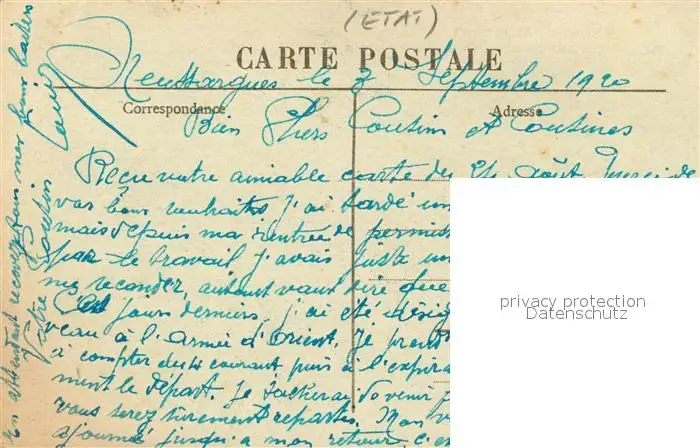 (ETAT)
CARTE POSTALE
Neussargues le 3 Septembre 1920
Correspondance
Adresse
Bien Chers Cousin et Cousines
Reçu votre aimable carte du 24 Août Merci de
vos bons souhaits j'ai tardé un
mais depuis ma rentrée de permiss
par le travail j'avais juste un
me reconder, autant vaut dire que
C'est jours derniers, j'ai été désig
veau à l'armée d'Orient. Je
à compter du 4 courant, puis à l'expira
ment le départ. Je tacherai de venir
vous serez surement repartis. Mon
ajournée jusqu'à mon retour, c'e
En attendant recevez tous mes plus doux baisers
Votre Cousin
Louis
privacy protection
Datenschutz